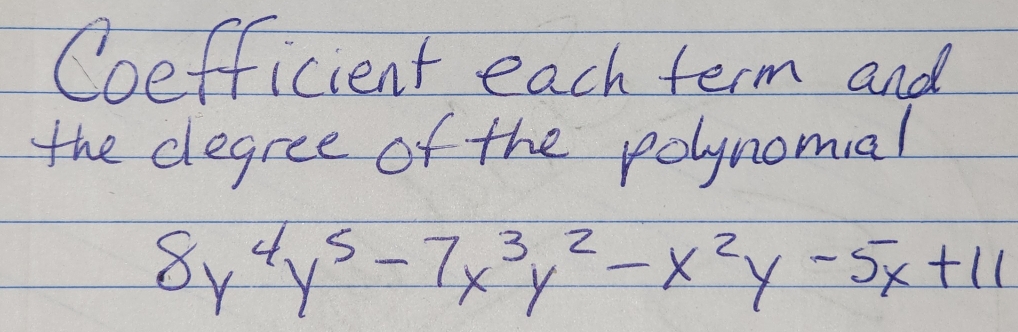 Coefficient each term and
the degree of the polynomial
8y⁴y⁵ - 7x³y² - x²y - 5x + 11